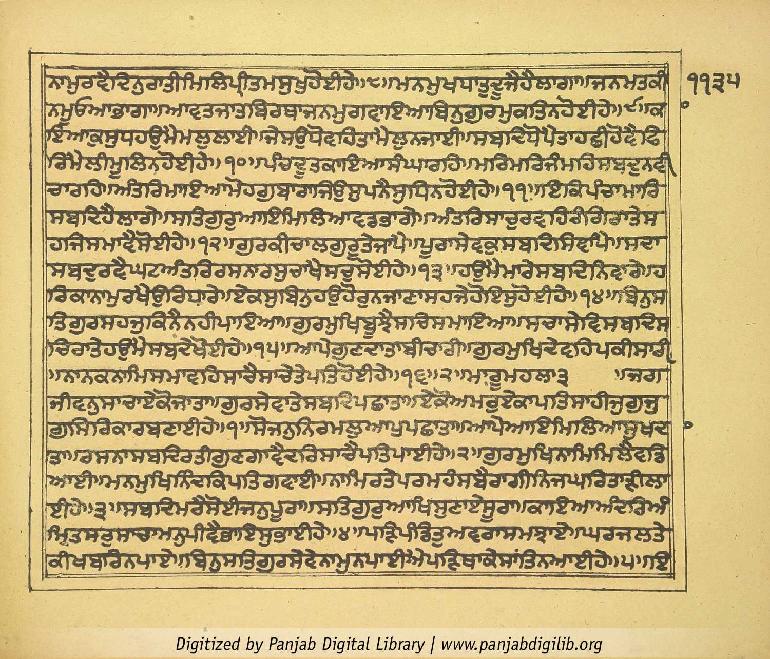 ਨਾਮੁਰਵੈਦਿਨੁਰਾਤੀਮਿਲਿਪ੍ਰੀਤਮਸੁਖੁਹੋਈਹੇ॥੮॥ਮਨਮੁਖਧਾਤੁਦੂਜੈਹੈਲਾਗਾ॥ਜਨਮਤਕੀ
੧੧੩੫
ਨਮੂਓਆਭਾਗਾ॥ਆਵਤਜਾਤਬਿਰਥਾਜਨਮੁਗਵਾਇਆਬਿਨੁਗੁਰਮੁਕਤਿਨਹੋਈਹੇ॥੯॥ਕ
ਇਆਕੁਸੁਧਹਉਮੈਮਲੁਲਾਈ॥ਜੇਸਉਧੋਵਹਿਤਾਮੈਲੁਨਜਾਈ॥ਸਬਦਿਧੋਪੈਤਾਹਛੀਹੋਵੈਫਿ
ਰਿਮੈਲੀਮੂਲਿਨਹੋਈਹੇ॥੧੦॥ਪੰਚਦੂਤਕਾਇਆਸੰਘਾਰਹਿ॥ਮਰਿਮਰਿਜੰਮਹਿਸਬਦੁਨਵੀ
ਚਾਰਹਿ॥ਅੰਤਰਿਮਾਇਆਮੋਹਗੁਬਾਰਾਜਿਉਸੁਪਨੈਸੁਧਿਨਹੋਈਹੇ॥੧੧॥ਇਕਿਪੰਚਾਮਾਰਿ
ਸਬਦਿਹੈਲਾਗੇ॥ਸਤਿਗੁਰੁਆਇਮਿਲਿਆਵਡਭਾਗੇ॥ਅੰਤਰਿਸਾਚੁਰਵਹਿਰੰਗਿਰਾਤੇਸ
ਹਜਿਸਮਾਵੈਸੋਈਹੇ॥੧੨॥ਗੁਰਕੀਚਾਲਗੁਰੂਤੇਜਾਪੈ॥ਪੂਰਾਸੇਵਕੁਸਬਦਿਸਿਞਾਪੈ॥ਸਦਾ
ਸਬਦੁਰਵੈਘਟਅੰਤਰਿਰਸਨਾਰਸੁਚਾਖੈਸਚੁਸੋਈਹੇ॥੧੩॥ਹਉਮੈਮਾਰੇਸਬਦਿਨਿਵਾਰੇ॥ਹ
ਰਿਕਾਨਾਮੁਰਖੈਉਰਿਧਾਰੇ॥ਏਕਸੁਬਿਨੁਹਉਹੋਰੁਨਜਾਣਾਸਹਜੇਹੋਇਸੁਹੋਈਹੇ॥੧੪॥ਬਿਨੁਸ
ਤਿਗੁਰਸਹਜੁਕਿਨੈਨਹੀਪਾਇਆ॥ਗੁਰਮੁਖਿਬੂਝੈਸਚਿਸਮਾਇਆ॥ਸਚਾਸੇਵਿਸਬਦਿਸ
ਚਿਰਾਤੇਹਉਮੈਸਬਦੇਖੋਈਹੇ॥੧੫॥ਆਪੇਗੁਣਦਾਤਾਬੀਚਾਰੀ॥ਗੁਰਮੁਖਿਦੇਵਹਿਪਕੀਸਾਰੀ
॥ਨਾਨਕਨਾਮਿਸਮਾਵਹਿਸਾਚੈਸਾਚੇਤੇਪਤਿਹੋਈਹੇ॥੧੬॥੨॥ਮਾਰੂਮਹਲਾ੩ ॥ਜਗ
ਜੀਵਨੁਸਾਚਾਏਕੋਜਾਤਾ॥ਗੁਰਸੇਵਾਤੇਸਬਦਿਪਛਾਤਾ॥ਏਕੋਅਮਰੁਏਕਾਪਤਿਸਾਹੀਜੁਗੁਜੁ
ਗੁਸਿਰਿਕਾਰਬਣਾਈਹੇ॥੧॥ਸੋਜਨੁਨਿਰਮਲੁਆਪੁਪਛਾਤਾ॥ਆਪੇਆਇਮਿਲਿਆਸੁਖਦਾ
ਤਾ॥ਰਸਨਾਸਬਦਿਰਤੀਗੁਣਗਾਵੈਦਰਿਸਾਚੈਪਤਿਪਾਈਹੇ॥੨॥ਗੁਰਮੁਖਿਨਾਮਿਮਿਲੈਵਡਿ
ਆਈ॥ਮਨਮੁਖਿਨਿੰਦਕਿਪਤਿਗਵਾਈ॥ਨਾਮਿਰਤੇਪਰਮਹੰਸਬੈਰਾਗੀਨਿਜਘਰਿਤਾੜੀਲਾ
ਈਹੇ॥੩॥ਸਬਦਿਮਰੈਸੋਈਜਨੁਪੂਰਾ॥ਸਤਿਗੁਰੁਆਖਿਸੁਣਾਏਸੂਰਾ॥ਕਾਇਆਅੰਦਰਿਅੰ
ਮ੍ਰਿਤਸਰੁਸਾਚਾਮਨੁਪੀਵੈਭਾਇਸੁਭਾਈਹੇ॥੪॥ਪੜਿਪੰਡਿਤੁਅਵਰਾਸਮਝਾਏ॥ਘਰਜਲਤੇ
ਕੀਖਬਰਿਨਪਾਏ॥ਬਿਨੁਸਤਿਗੁਰਸੇਵੇਨਾਮੁਨਪਾਈਐਪੜਿਥਾਕੇਸਾਂਤਿਨਆਈਹੇ॥੫॥ਇ
Digitized by Panjab Digital Library | www.panjabdigilib.org